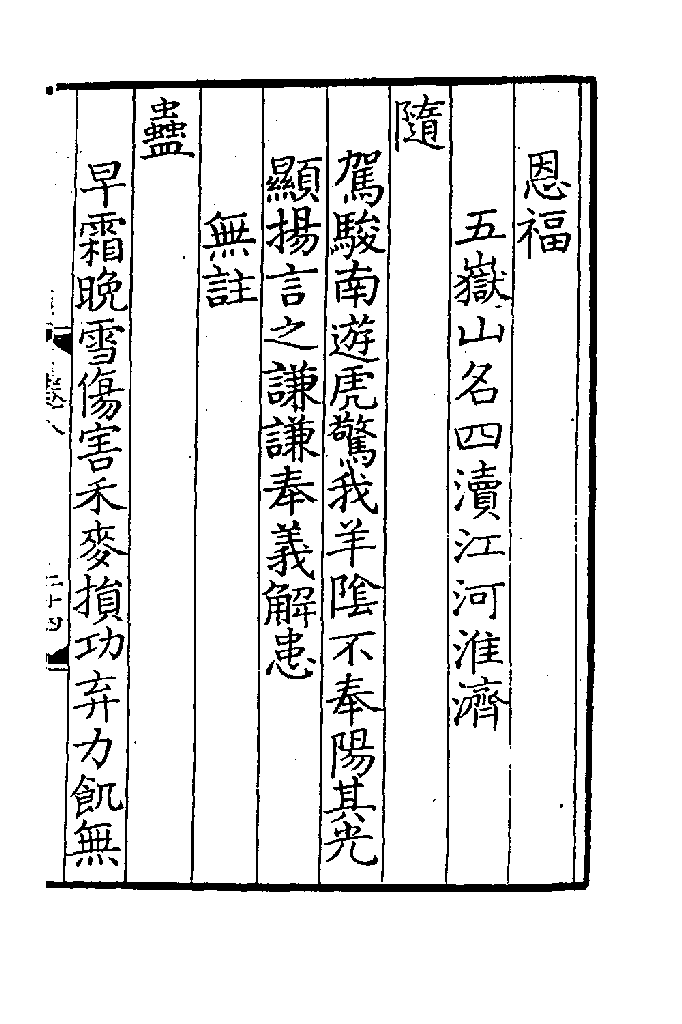 恩福
五嶽山名四瀆江河淮濟
隨
駕駿南遊虎驚我羊陰不奉陽其光
顯揚言之謙謙奉義解患
無註
蠱
早霜晚雪傷害禾麥損功弃力飢無
卷八
二十四